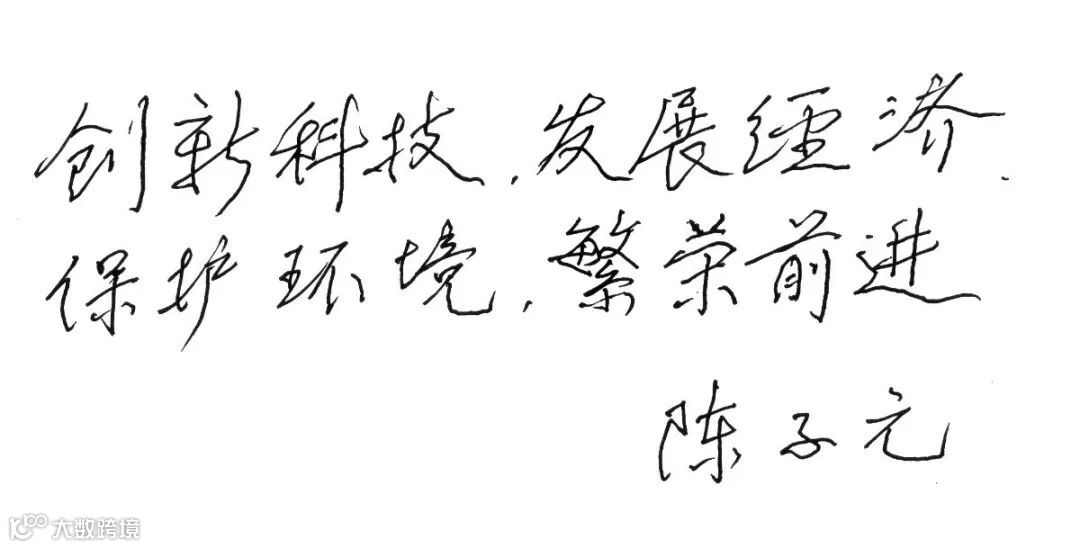 创新科技,发展经济.
保护环境,繁荣前进
陈子元
大数跨境